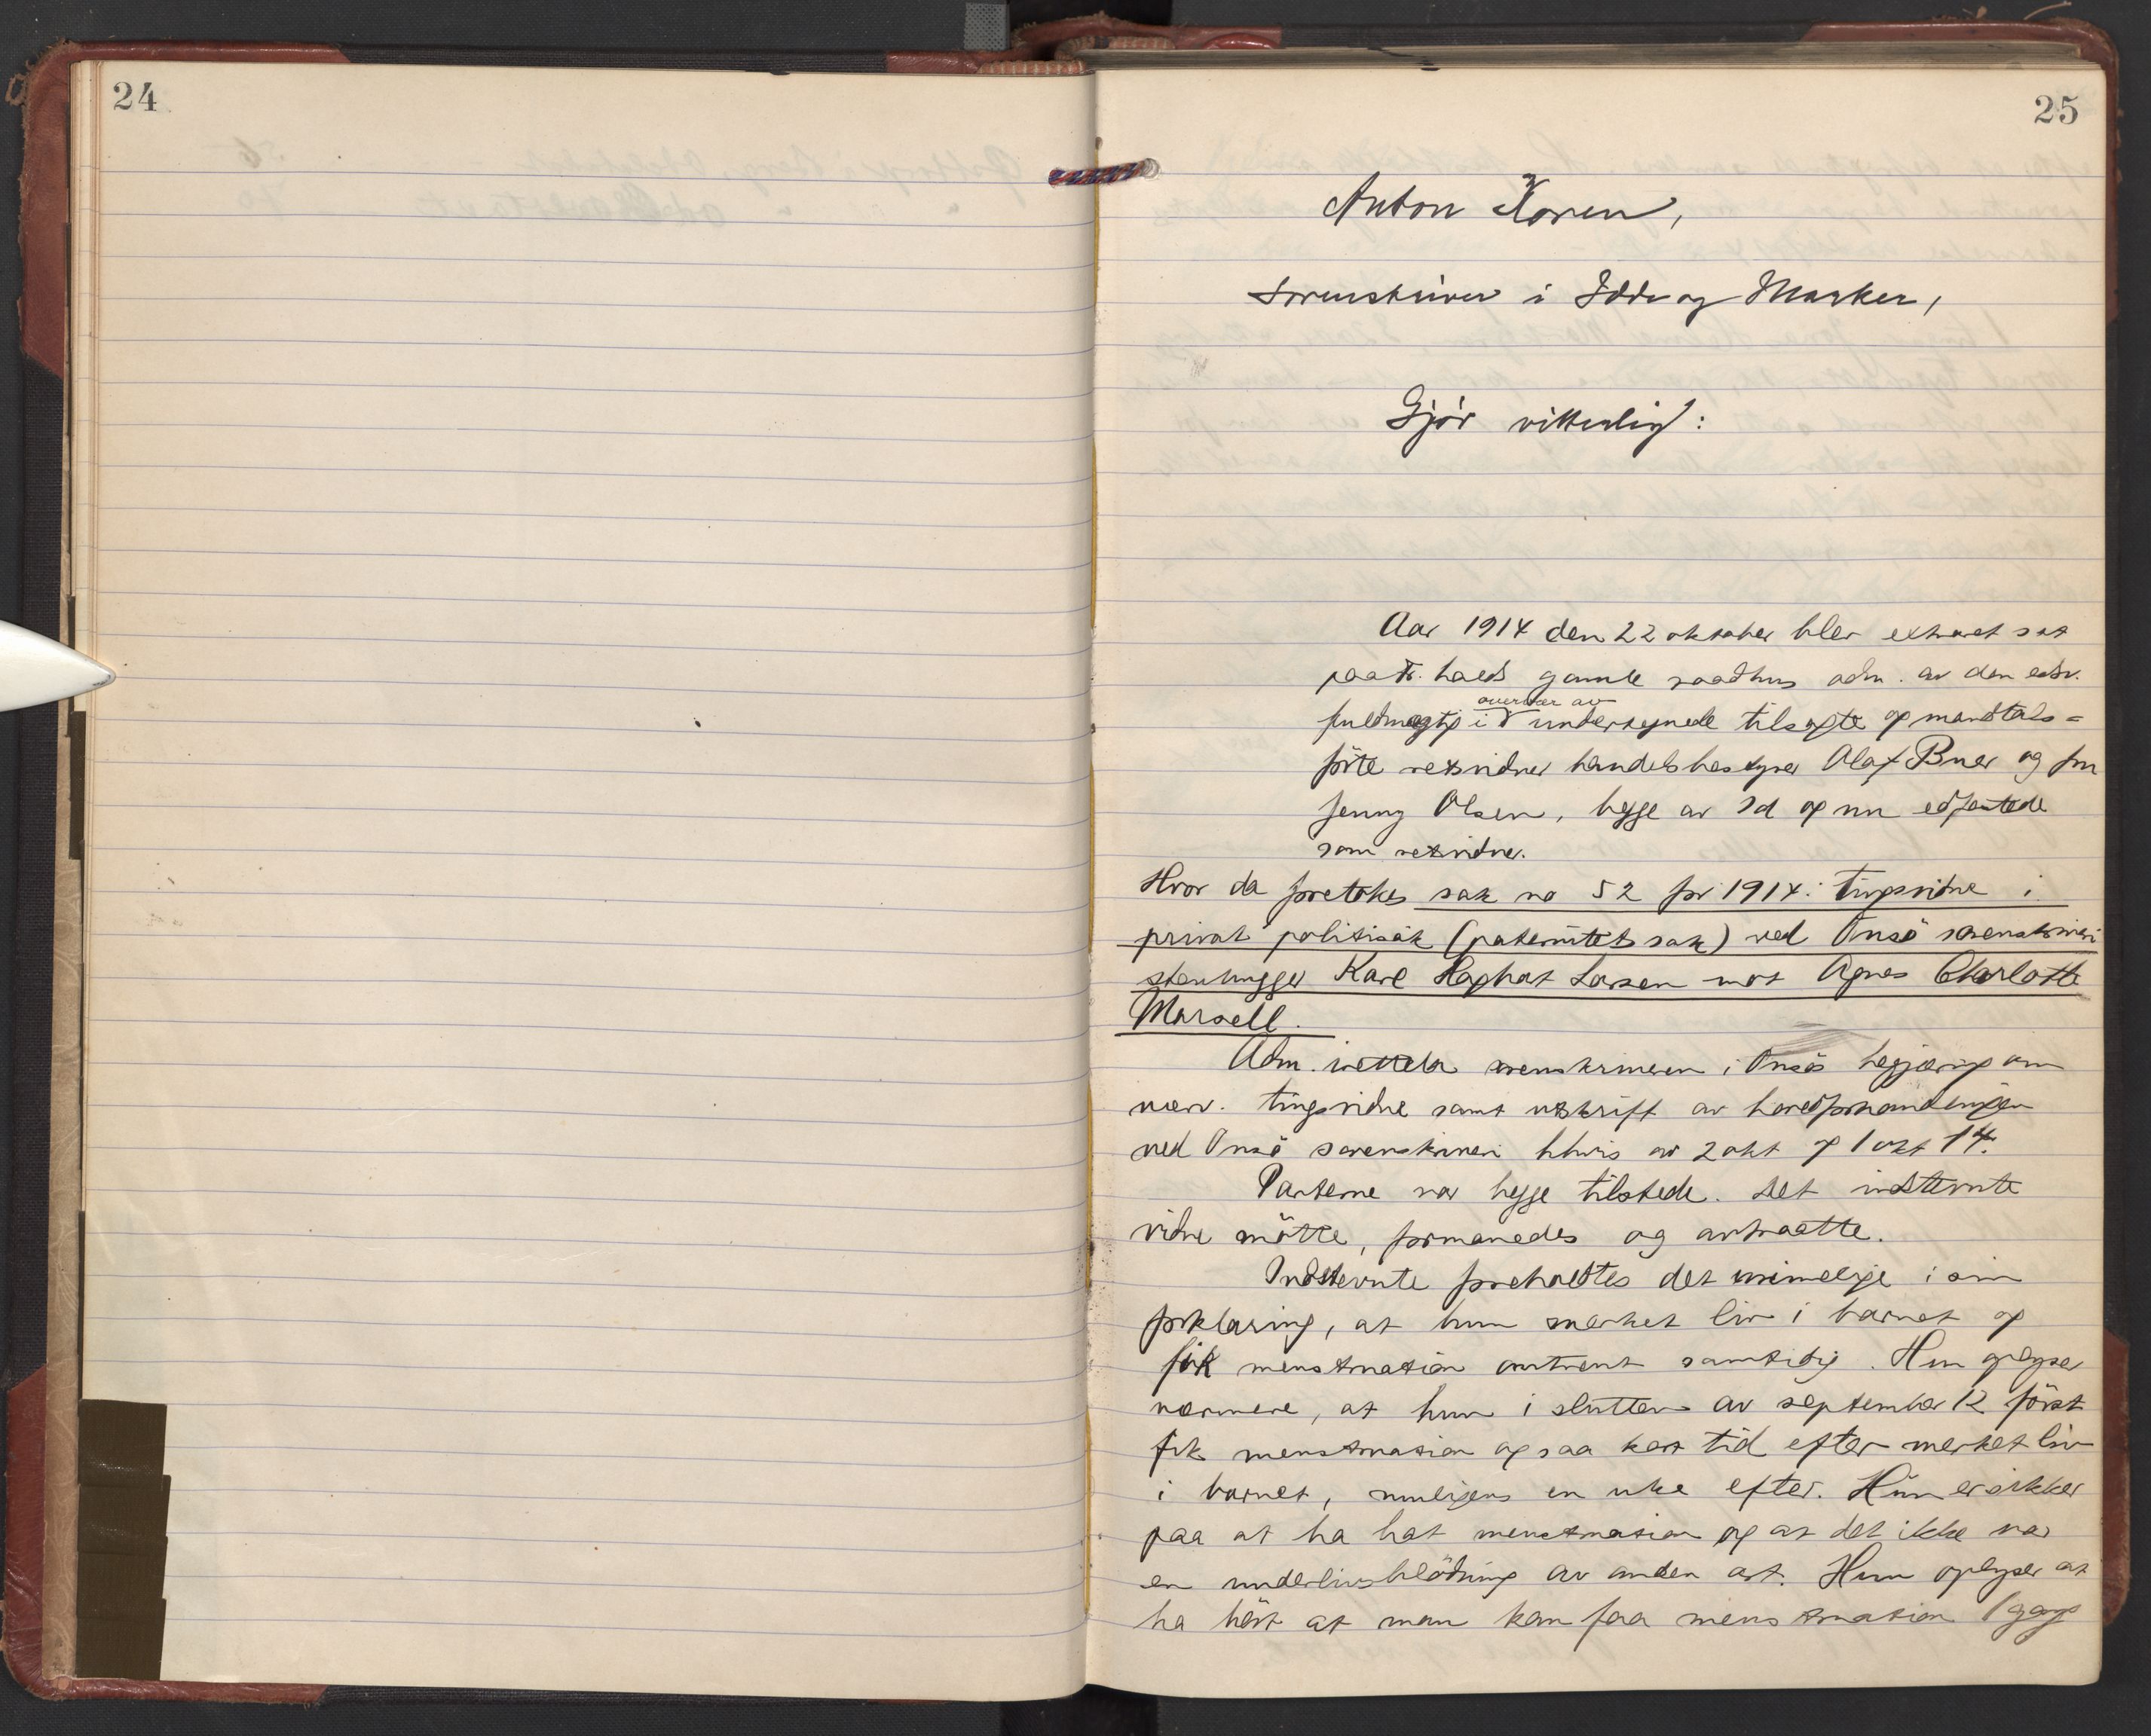 24
25
Anton Koren,
sorenskriver i Idd og Marker,
Gjør vitterligt:
Aar 1914 den 22 oktober blev extraret sat
paa Fr.halds gamle raadhus adm. av den edsv.
overvær av
fuldmægtig i undertegnede tilsagte og mandtals=
førte retsvidner handelsbestyrer Olaf Buer og fru
Jenny Olsen, begge av Id og nu edfæstede
som retsvidner.
Hvor da foretokes sak no 52 for 1914: tingsvidne i
privat politisak (paternitetssak) ved Onsö sorenskriveri
stenhugger Karl Larsen mot Agnes Charlotte
Marsell.
Adm. irettela sorenskriveren i Onsö begjæring om
nærv. tingsvidne samt utskrift av hovedforhandlingen
ved Onsö sorenskriveri hhvis av 2 okt og 1 okt 14.
Parterne var begge tilstede. Det indstevnte
vidne mötte, formanedes og avtraatte.
Indstevnte foreholdtes det urimelige i sin
forklaring, at hun merket liv i barnet og
fik menstruation omtrent samtidig. Hun oplyser
nærmere, at hun i slutten av september 12 först
fik menstruation og saa kort tid efter merket liv
i barnet, muligens en uke efter. Hun er sikker
paa at ha hat menstruation og at det ikke var
en underlivsblödning av anden art. Hun oplyser at
ha hört at man kan faa menstruation 1 gang